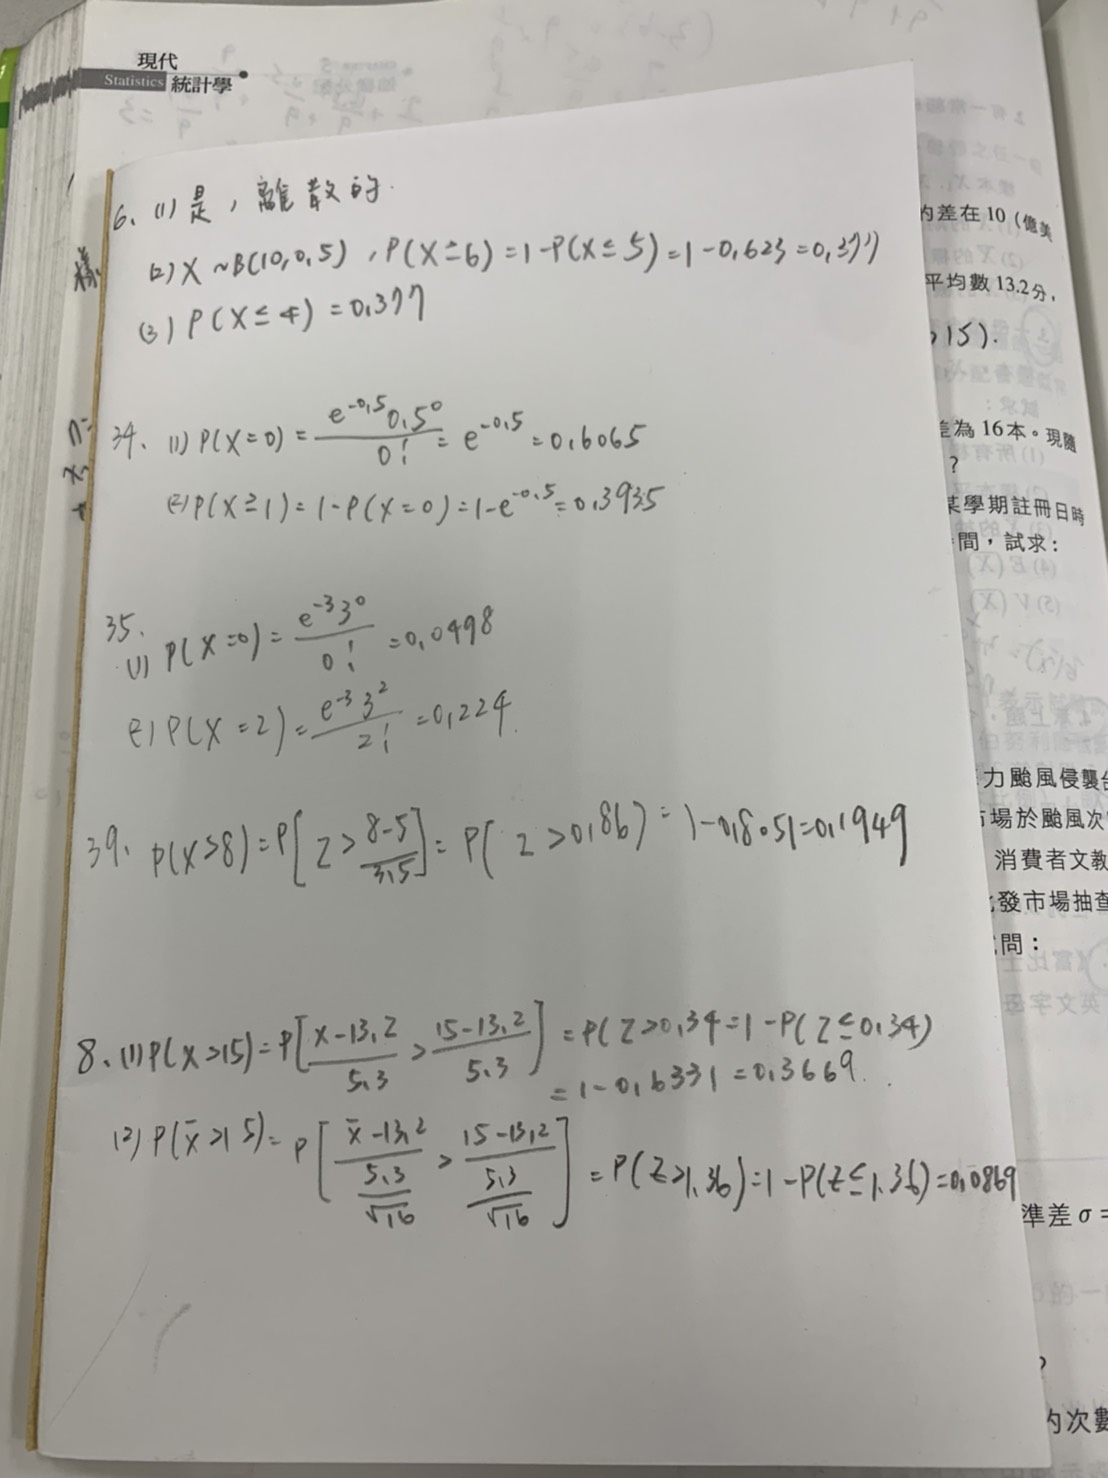 現代
Statistics 統計學
6、(1) 是，離散的.
(2) X ~ B(10, 0.5), P(X ≥ 6) = 1 - P(X ≤ 5) = 1 - 0.623 = 0.377
(3) P(X ≤ 4) = 0.377
34、(1) P(X=0) = e^-0.5 0.5^0 / 0! = e^-0.5 = 0.6065
(2) P(X ≥ 1) = 1 - P(X=0) = 1 - e^-0.5 = 0.3935
35、
(1) P(X=0) = e^-3 3^0 / 0! = 0.0498
(2) P(X=2) = e^-3 3^2 / 2! = 0.224.
39、P(X>8) = P[Z > 8-5 / 3.5] = P(Z > 0.86) = 1 - 0.8051 = 0.1949
8、(1) P(X>15) = P[X-13.2 / 5.3 > 15-13.2 / 5.3] = P(Z > 0.34 = 1 - P(Z ≤ 0.34)
= 1 - 0.6331 = 0.3669.
(2) P(x̄ > 15) = P[x̄-13.2 / 5.3/√16 > 15-13.2 / 5.3/√16] = P(Z > 1.36) = 1 - P(Z ≤ 1.36) = 0.0869
的差在 10 (億美
平均數 13.2分，
15).
差為 16本。現隨
?
某學期註冊日時
間，試求：
力颱風侵襲台
市場於颱風次
消費者文教
批發市場抽查
試問：
準差 σ =
?
的次數